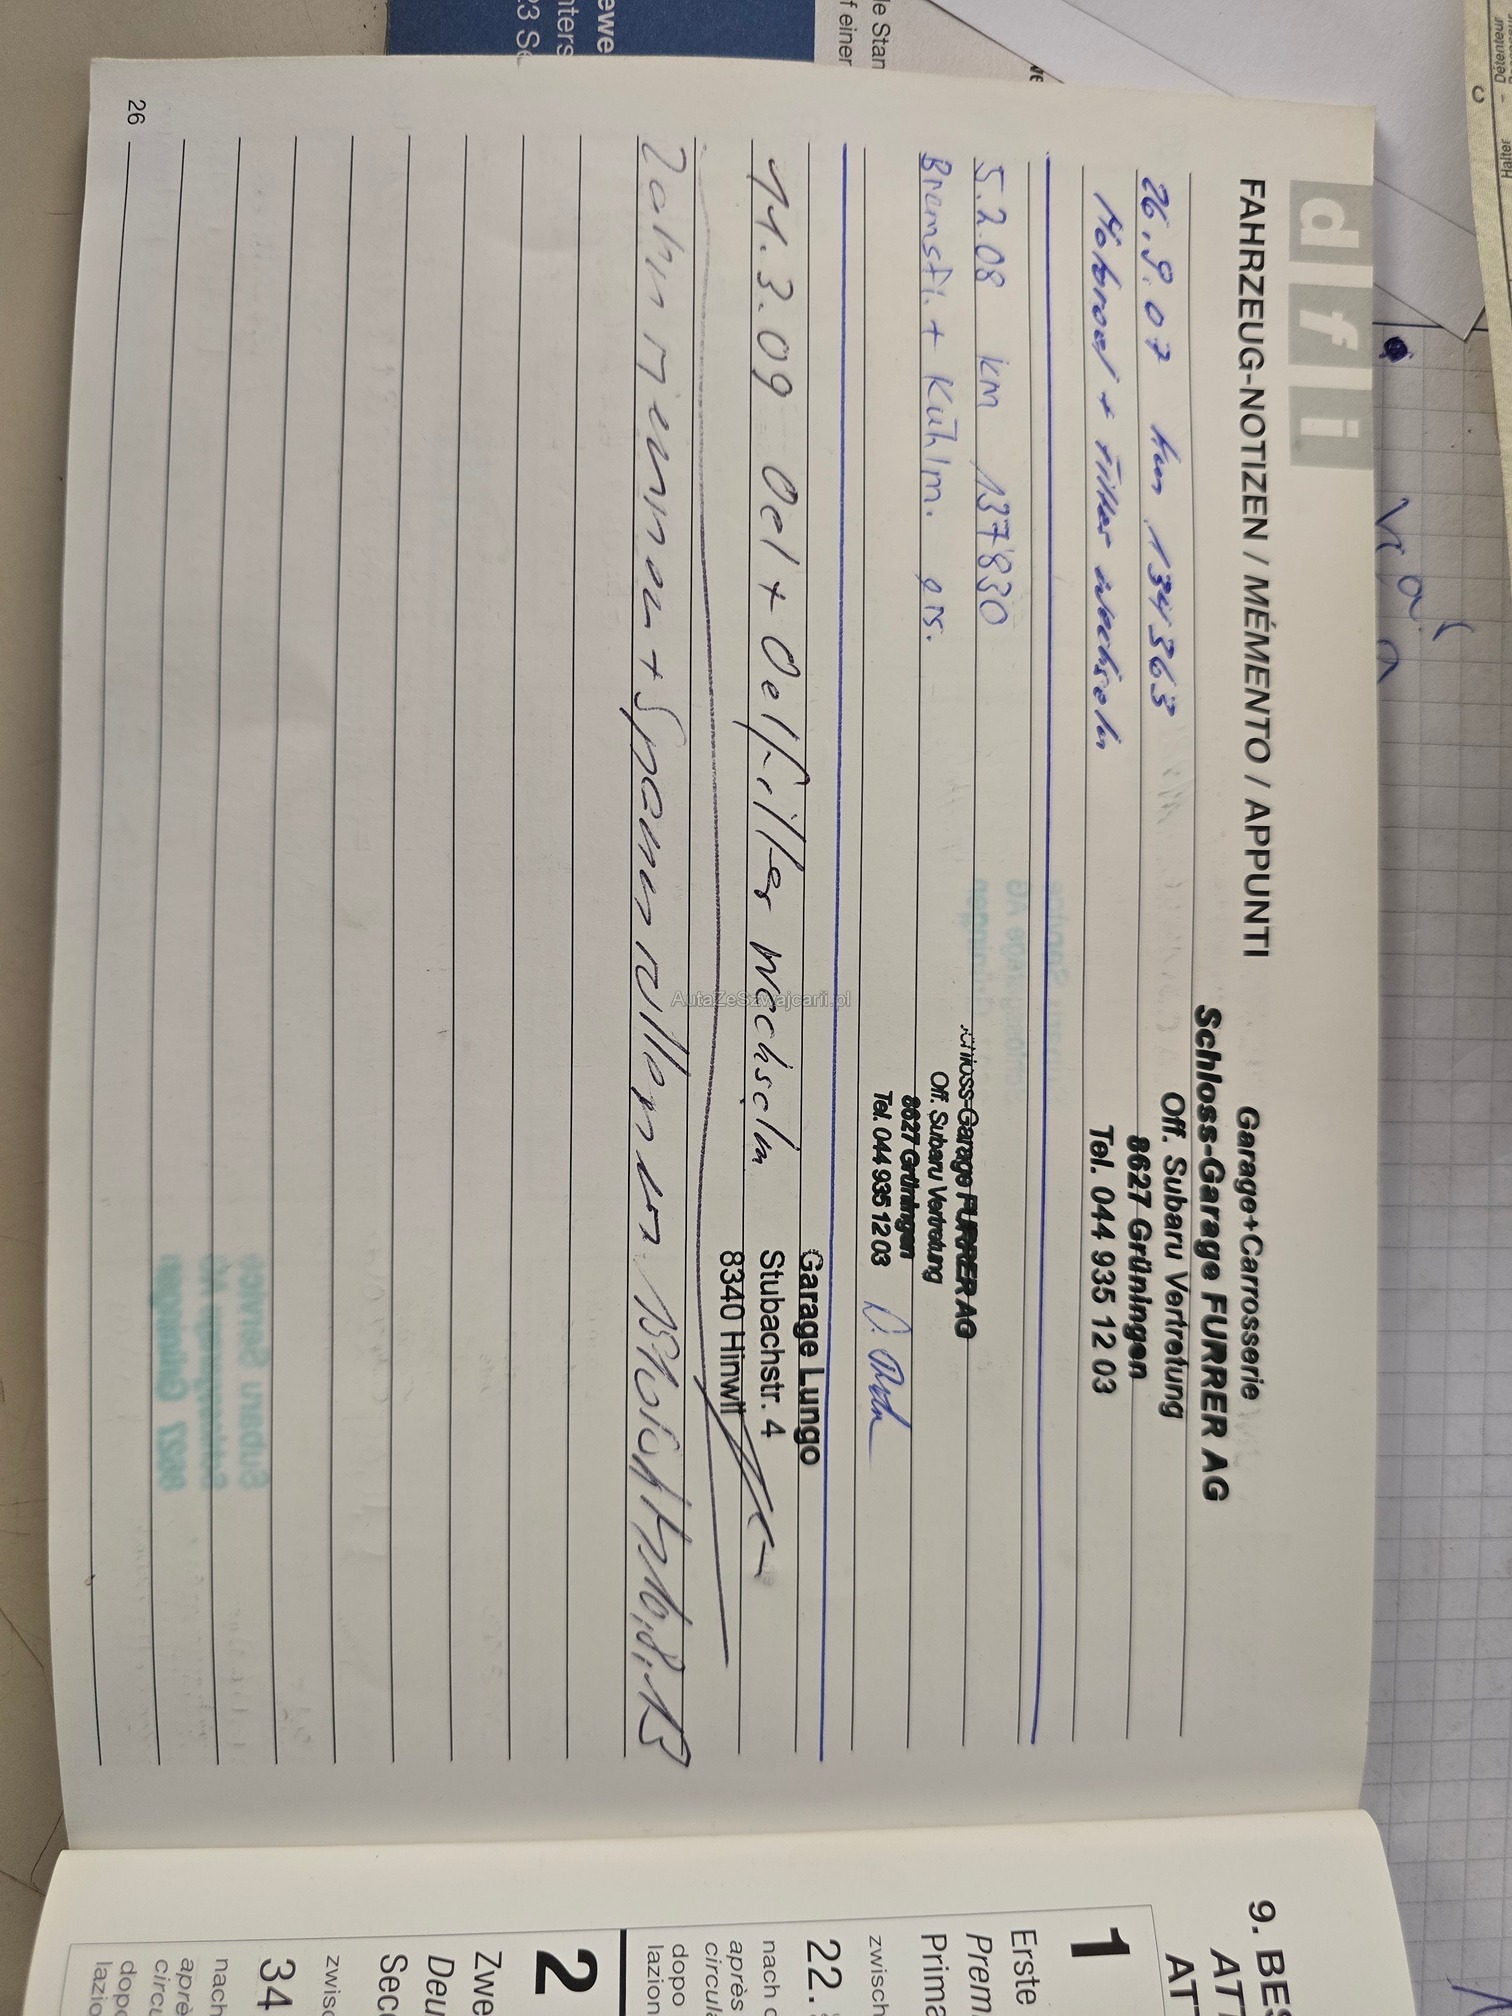 d f i
FAHRZEUG-NOTIZEN / MÉMENTO / APPUNTI
Garage+Carrosserie
Schloss-Garage FURRER AG
Off. Subaru Vertretung
8627 Grüningen
Tel. 044 935 12 03
26.9.07 km 134363
Motoroel + Filter wechseln
5.2.08 km 137830
Bremsfl. + Kühlm. ers.
Schloss-Garage FURRER AG
Off. Subaru Vertretung
8627 Grüningen
Tel. 044 935 12 03
11.3.09 Oel + Oelfilter wechseln
Garage Lungo
Stubachstr. 4
8340 Hinwil
Zahnriemen + Spannrollen
26
AutaZeSzwajcarii.pl
9. BES
ATT
ATT
1
Erste
Prem
Prima
zwisch
22.
nach
après
circula
dopo
lazion
2
Zwe
Deu
Sec
zwisc
34
nach
après
circu
dopo
lazio
le Stan
f einer